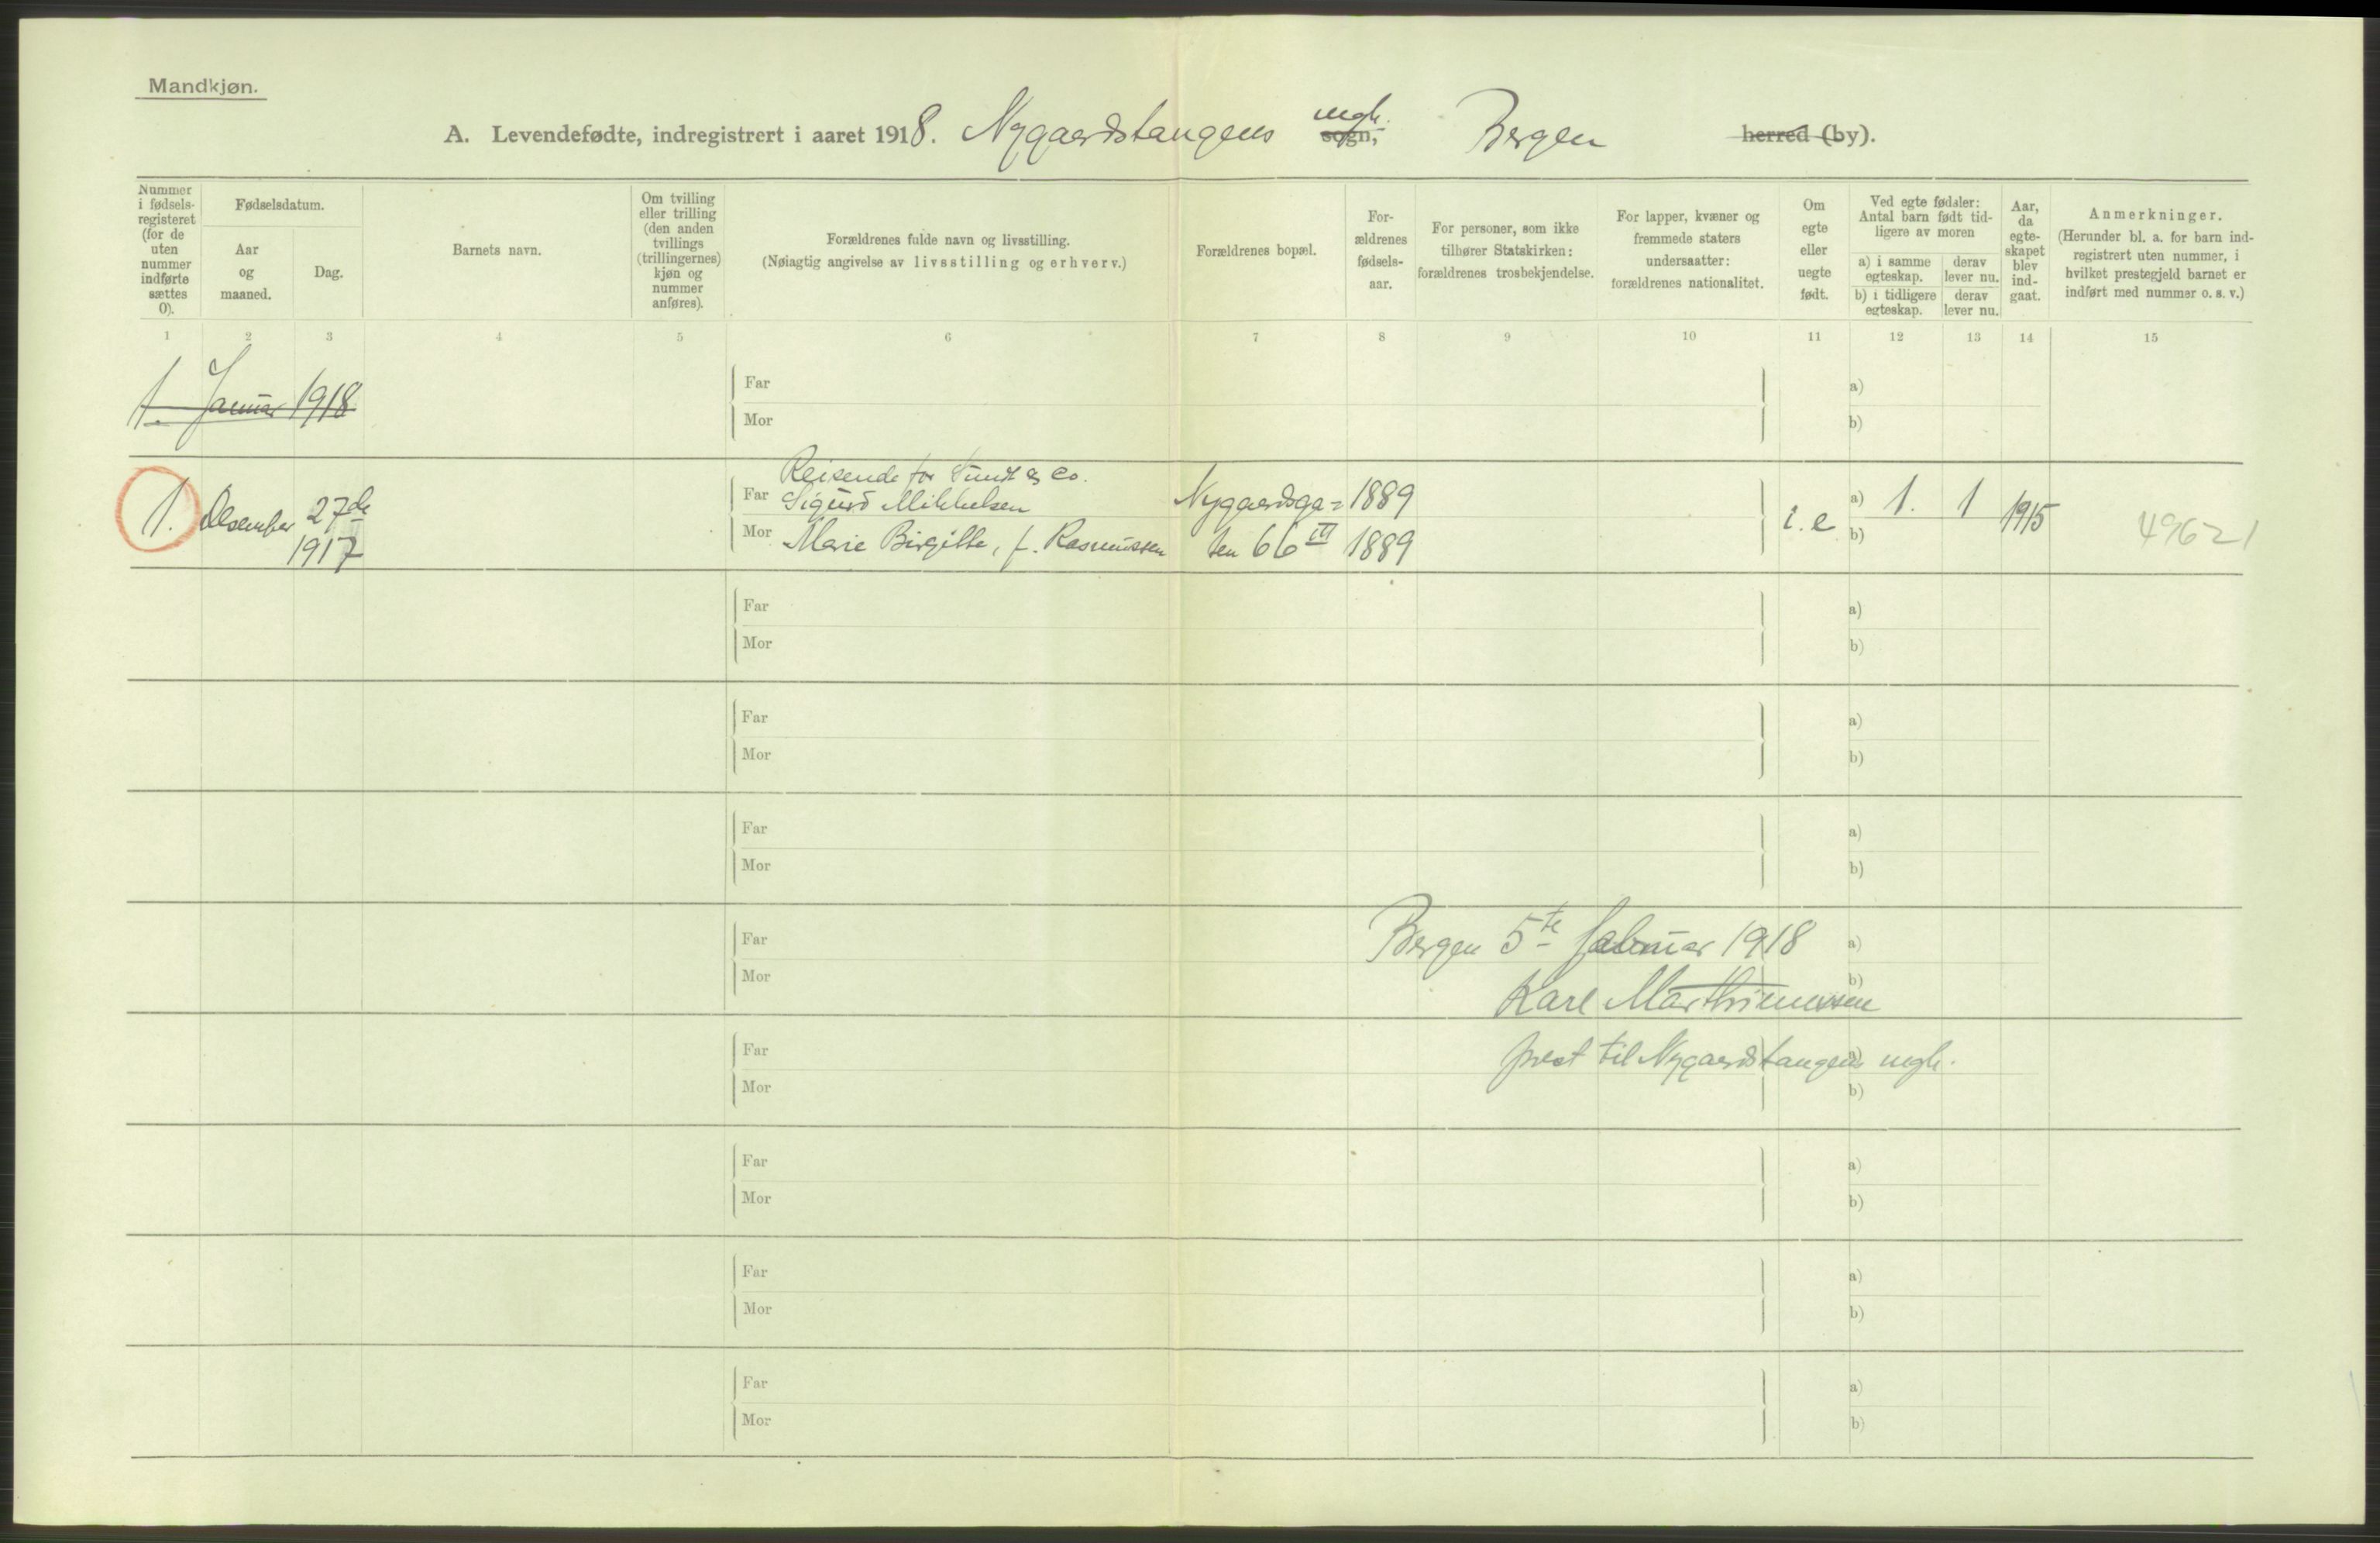 Mandkjøn.
A. Levendefødte, indregistrert i aaret 1918. Nygaardstangens sogn, mgh. Bergen herred (by).
Nummer i fødsels-registeret (for de uten nummer indførte sættes 0).
Fødselsdatum.
Aar og maaned.
Dag.
Barnets navn.
Om tvilling eller trilling (den anden tvillings (trillingernes) kjøn og nummer anføres).
Forældrenes fulde navn og livsstilling.
(Nøiagtig angivelse av livsstilling og erhverv.)
Forældrenes bopæl.
For-ældrenes fødsels-aar.
For personer, som ikke tilhører Statskirken: forældrenes trosbekjendelse.
For lapper, kvæner og fremmede staters undersaatter: forældrenes nationalitet.
Om egte eller uegte født.
Ved egte fødsler: Antal barn født tid-ligere av moren
a) i samme egteskap.
derav lever nu.
b) i tidligere egteskap.
derav lever nu.
Aar, da egte-skapet blev ind-gaat.
Anmerkninger.
(Herunder bl. a. for barn ind-registrert uten nummer, i hvilket prestegjeld barnet er indført med nummer o. s. v.)
1 2 3 4 5 6 7 8 9 10 11 12 13 14 15
1. Januar 1918
Far a)
Mor b)
Reisende for Sundt & Co.
1. Desember 27de Far Sigurd Mikkelsen Nygaardsga= 1889 i. e a) 1. 1 1915 49621
1917 Mor Marie Birgitte, f. Rasmussen ten 66 III 1889 b)
Far a)
Mor b)
Far a)
Mor b)
Far a)
Mor b)
Far Bergen 5te februar 1918 a)
Mor b)
Karl Marthinussen
Far prest til Nygaardstangens mgh. a)
Mor b)
Far a)
Mor b)
Far a)
Mor b)
Far a)
Mor b)